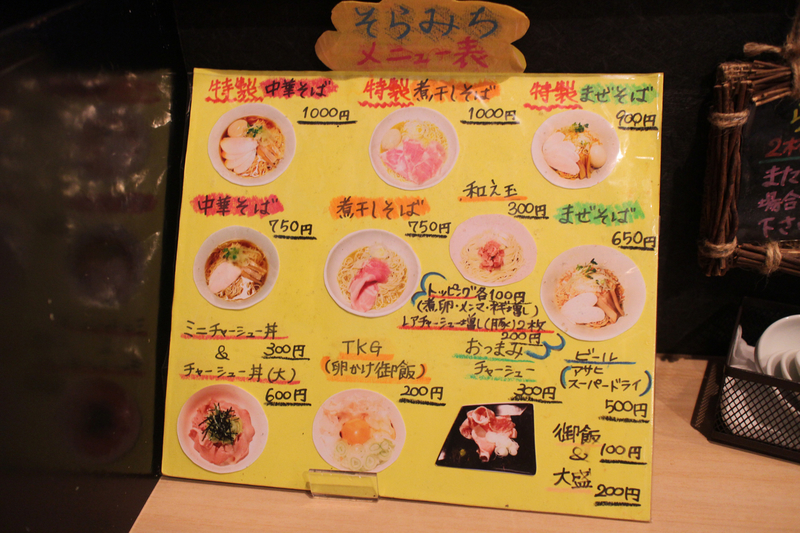 そらみち
メニュー表
特製中華そば
1000円
特製煮干しそば
1000円
特製まぜそば
900円
中華そば
750円
煮干しそば
750円
和え玉
300円
まぜそば
650円
トッピング各100円
(煮卵・メンマ・
増し)
レアチャーシュー増し(豚)2枚
200円
ミニチャーシュー丼
& 300円
チャーシュー丼(大)
600円
TKG
(卵かけ御飯)
200円
おつまみ
チャーシュー
300円
ビール
(アサヒ
スーパードライ)
500円
御飯
& 100円
大盛
200円
また
場合
下さ